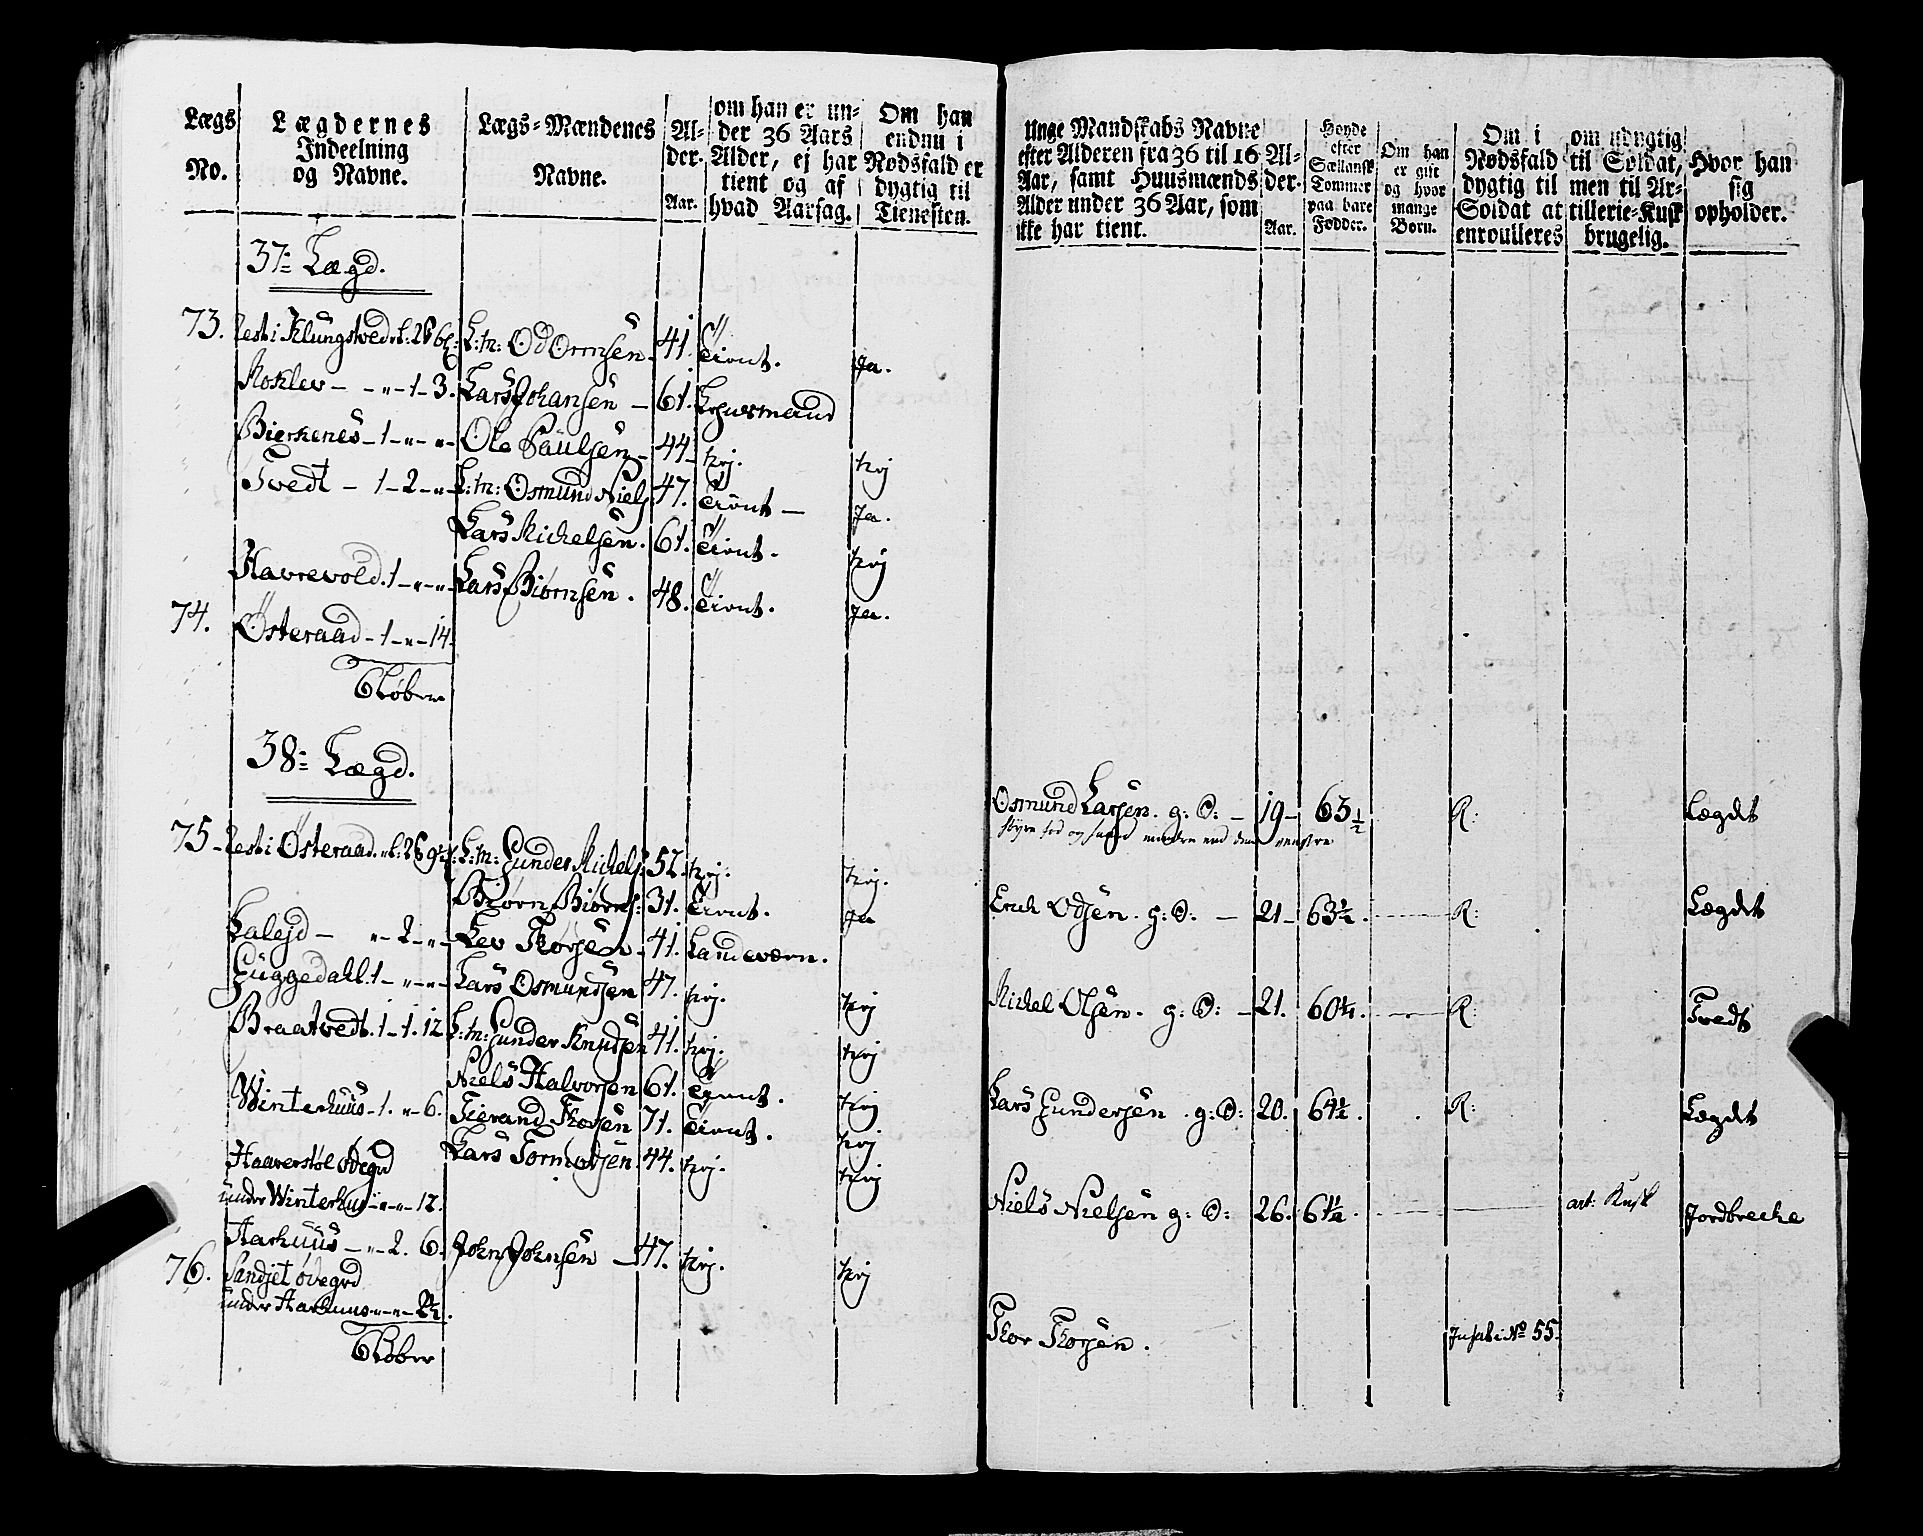 Lægs No.
Lægdernes Indeelning og Navne.
Lægs-Mændenes Navne.
Alder. Aar.
om han er under 36 Aars Alder, ej har tient og af hvad Aarsag.
Om han endnu i Nødsfald er dygtig til Tienesten.
37= Lægd.
73. Rest i Klungtvedt L: Tn: Od Ormsen 41. Tient. Ja.
Roklev - - „ - 1 - 3. Lars Johansen - 61.
Bierkenes - 1 - „ - „ - Ole Paulsen - 44 - Nej. Nej
Tvedt - 1 - 2 - „ - L: m: Osmund Niels: 47. Tient - Ja.
Lars Michelsen. 61. Tient. Nej
Havrevold. 1 - „ - „ - Lars Biørnsen. 48. Tient. Ja.
74. Østeraad - 1 - „ - 14.
6 Løber
38= Lægd.
75 - Rest i Østeraad L: m: Gunder Michels: 52. Nej. Nej.
Biørn Biørns: 31. Tient. Ja
Lalejd - „ - 2 - „ - Lev Thorsen - 41. Landeværn.
Guggedahl. 1 - „ - „ - Lars Osmundsen 47. Nej. Nej
Braatvedt. 1 - 1. 12. L: m: Gunder Knudsen 41. Nej. Nej
Niels Halvorsen 61. Tient. Nej
Winterhuus - 1. „ 6. Tierand Thorsen 71. Tient. Nej
Lars Tormodsen. 44. Nej. Nej
Haaverstøl ødegrd
under Winterhuus - „ - „ - 12.
Aarhuus - „ - 2. 6. John Johnsen - 47. Nej. Nej
76. Sandjet ødegrd
under Aarhuus - „ - „ - 2½.
6 Løber
Unge Mandskabs Navne efter Alderen fra 36 til 16 Aar, samt Huusmænds Alder under 36 Aar, som ikke har tient.
Alder. Aar.
Høyde efter Siællansk Tommer paa bare Fødder.
Om han er gift og hvor mange Børn.
Om i Nødsfald dygtig til Soldat at enroulleres
om udygtig til Soldat, men til Artillerie-Kusk brugelig.
Hvor han sig opholder.
Osmund Larsen. g: S: - 19 - 63½ R: Lægdt
Erich Odsen. g: S: - 21 - 63½. R: Lægdt
Michel Olsen. g: S: - 21. 60¼. R: Tvedt
Lars Gundersen. g: S: 20. 64½. R: Lægdt
Niels Nielsen g: S: 26. 61½. art: Kusk Jordbrecke
Thor Thorsen. No 55.